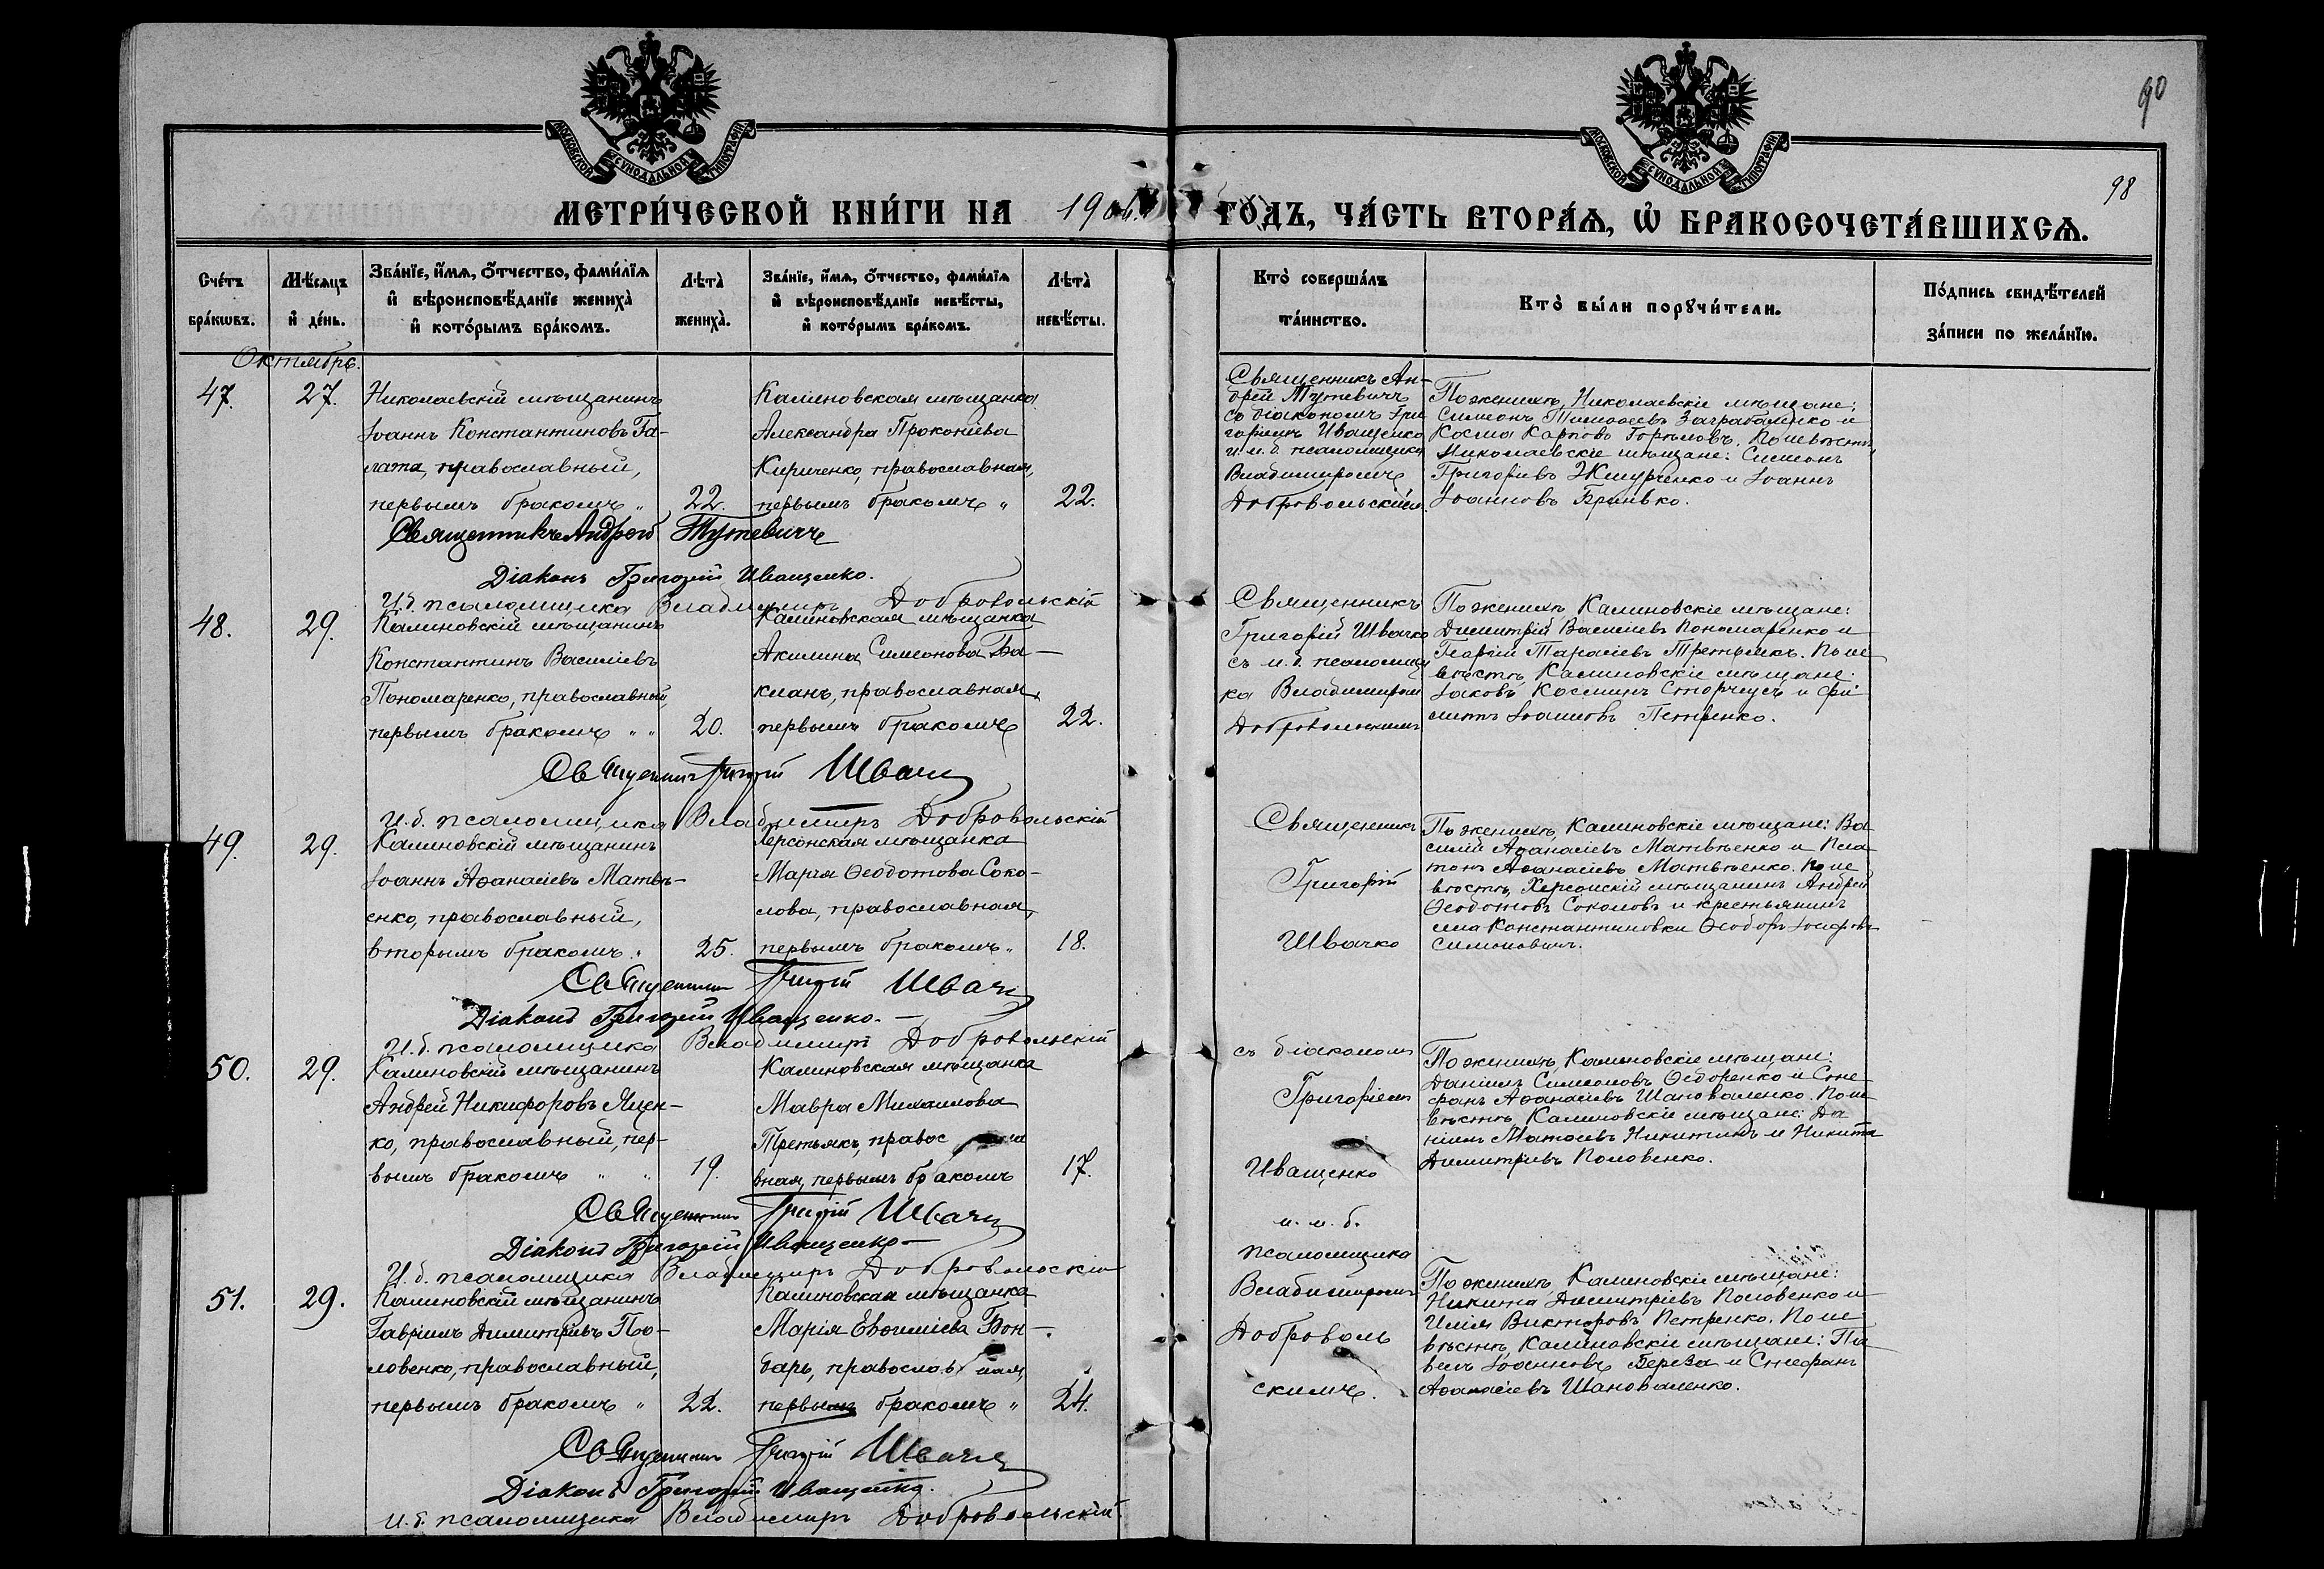 90
98
МОСКОВСКОЙ СѴНОДАЛЬНОЙ ТИПОГРАФІИ
МОСКОВСКОЙ СѴНОДАЛЬНОЙ ТИПОГРАФІИ
МЕТРИ́ЧЕСКОЙ КНИ́ГИ НА 1906 ГО́ДЪ, ЧА́СТЬ ВТОРА́Ѧ, Ѡ҆ БРАКОСОЧЕТА́ВШИХСѦ.
Сче́тъ
бра́кѡвъ.
Мѣ́сѧцъ
и҆ де́нь.
Зва́нїе, и҆́мѧ, ѻ҆́тчество, фами́лїѧ
и҆ вѣроисповѣ́данїе жениха̀
и҆ кото́рымъ бра́комъ.
Лѣта̀
жениха̀.
Зва́нїе, и҆́мѧ, ѻ҆́тчество, фами́лїѧ
и҆ вѣроисповѣ́данїе невѣ́сты,
и҆ кото́рымъ бра́комъ.
Лѣта̀
невѣ́сты.
Кто̀ соверша́лъ
та́инство.
Кто̀ бы́ли порꙋчи́тели.
По́дпись свидѣ́телей
за́писи по жела́нїю.
Октябрь.
47.
27.
Николаевскій мѣщанинъ
Іоаннъ Константиновъ Га-
лата, православный,
первымъ бракомъ „
22.
Калиновская мѣщанка
Александра Прокопіева
Кириченко, православная,
первымъ бракомъ „
22.
Священникъ Ан-
дрей Тутевичъ
съ діакономъ Гри
горіемъ Иващенко
и и. д. псаломщика
Владиміромъ
Добровольскимъ.
По женихѣ, Николаевскіе мѣщане:
Симеонъ Тимоѳеевъ Заграбаленко и
Косма Карповъ Горѣловъ. По невѣстѣ,
Николаевскіе мѣщане: Симеонъ
Григоріевъ Жмурченко и Іоаннъ
Іоанновъ Гринько.
Священникъ Андрей Тутевичъ
Діаконъ Григорій Иващенко.
И. д. псаломщика Владиміръ Добровольскій
48.
29.
Калиновскій мѣщанинъ
Константинъ Василіевъ
Пономаренко, православный,
первымъ бракомъ „ „
20.
Калиновская мѣщанка
Акилина Симеонова Ба-
кланъ, православная,
первымъ бракомъ
22.
Священникъ
Григорій Швачко
съ и. д. псаломщи
ка Владиміром
Добровольскимъ
По женихѣ, Калиновскіе мѣщане:
Димитрій Василіевъ Пономаренко и
Георгій Тарасіевъ Третьякъ. По не
вѣстѣ, Калиновскіе мѣщане:
Іаковъ Косминъ Сторчеусъ и Фи
липпъ Іоанновъ Петренко.
Священник Григорій Швачко
И. д. псаломщика Владиміръ Добровольскій
49.
29.
Калиновскій мѣщанинъ
Іоаннъ Аѳанасіевъ Матвѣ-
енко, православный,
вторымъ бракомъ „
25.
Херсонская мѣщанка
Марія Ѳеодотова Соко-
лова, православная,
первымъ бракомъ „
18.
Священникъ
Григорій
Швачко
По женихѣ, Калиновскіе мѣщане: Ва
силій Аѳанасіевъ Матвѣенко и Пла
тонъ Аѳанасіевъ Матвѣенко. По не
вѣстѣ, Херсонскій мѣщанинъ Андрей
Ѳеодотовъ Соколовъ и крестьянинъ
села Константиновки Ѳеодоръ Іосифовъ
Симоновичъ.
Священник Григорій Швачко
Діаконъ Григорій Иващенко.
И. д. псаломщика Владиміръ Добровольскій
50.
29.
Калиновскій мѣщанинъ
Андрей Никифоровъ Яцен-
ко, православный, пер-
вымъ бракомъ „ „
19.
Калиновская мѣщанка
Мавра Михаилова
Третьякъ, правос
вная, первымъ бракомъ
17.
съ діакономъ
Григоріемъ
Иващенко
и и. д.
псаломщика
Владиміромъ
Доброволь
скимъ.
По женихѣ, Калиновскіе мѣщане:
Даніилъ Симеоновъ Ѳедоренко и Сте
фанъ Аѳанасіевъ Шаповаленко. По не
вѣстѣ, Калиновскіе мѣщане: Да
ніилъ Матѳеевъ Никитинъ и Никита
Димитріевъ Половенко.
Священник Григорій Швачко
Діаконъ Григорій Иващенко
И. д. псаломщика Владиміръ Добровольскій
51.
29.
Калиновскій мѣщанинъ
Гавріилъ Димитріевъ По-
ловенко, православный,
первымъ бракомъ „
22.
Калиновская мѣщанка
Марія Евѳиміева Бон-
дарь, православная,
первымъ бракомъ „
24.
По женихѣ, Калиновскіе мѣщане:
Никита Димитріевъ Половенко и
Илія Викторовъ Петренко. По не
вѣстѣ, Калиновскіе мѣщане: Па
велъ Іоанновъ Береза и Стефанъ
Аѳанасіевъ Шаповаленко.
Священник Григорій Швачко
Діаконъ Григорій Иващенко.
И. д. псаломщика Владиміръ Добровольскій.